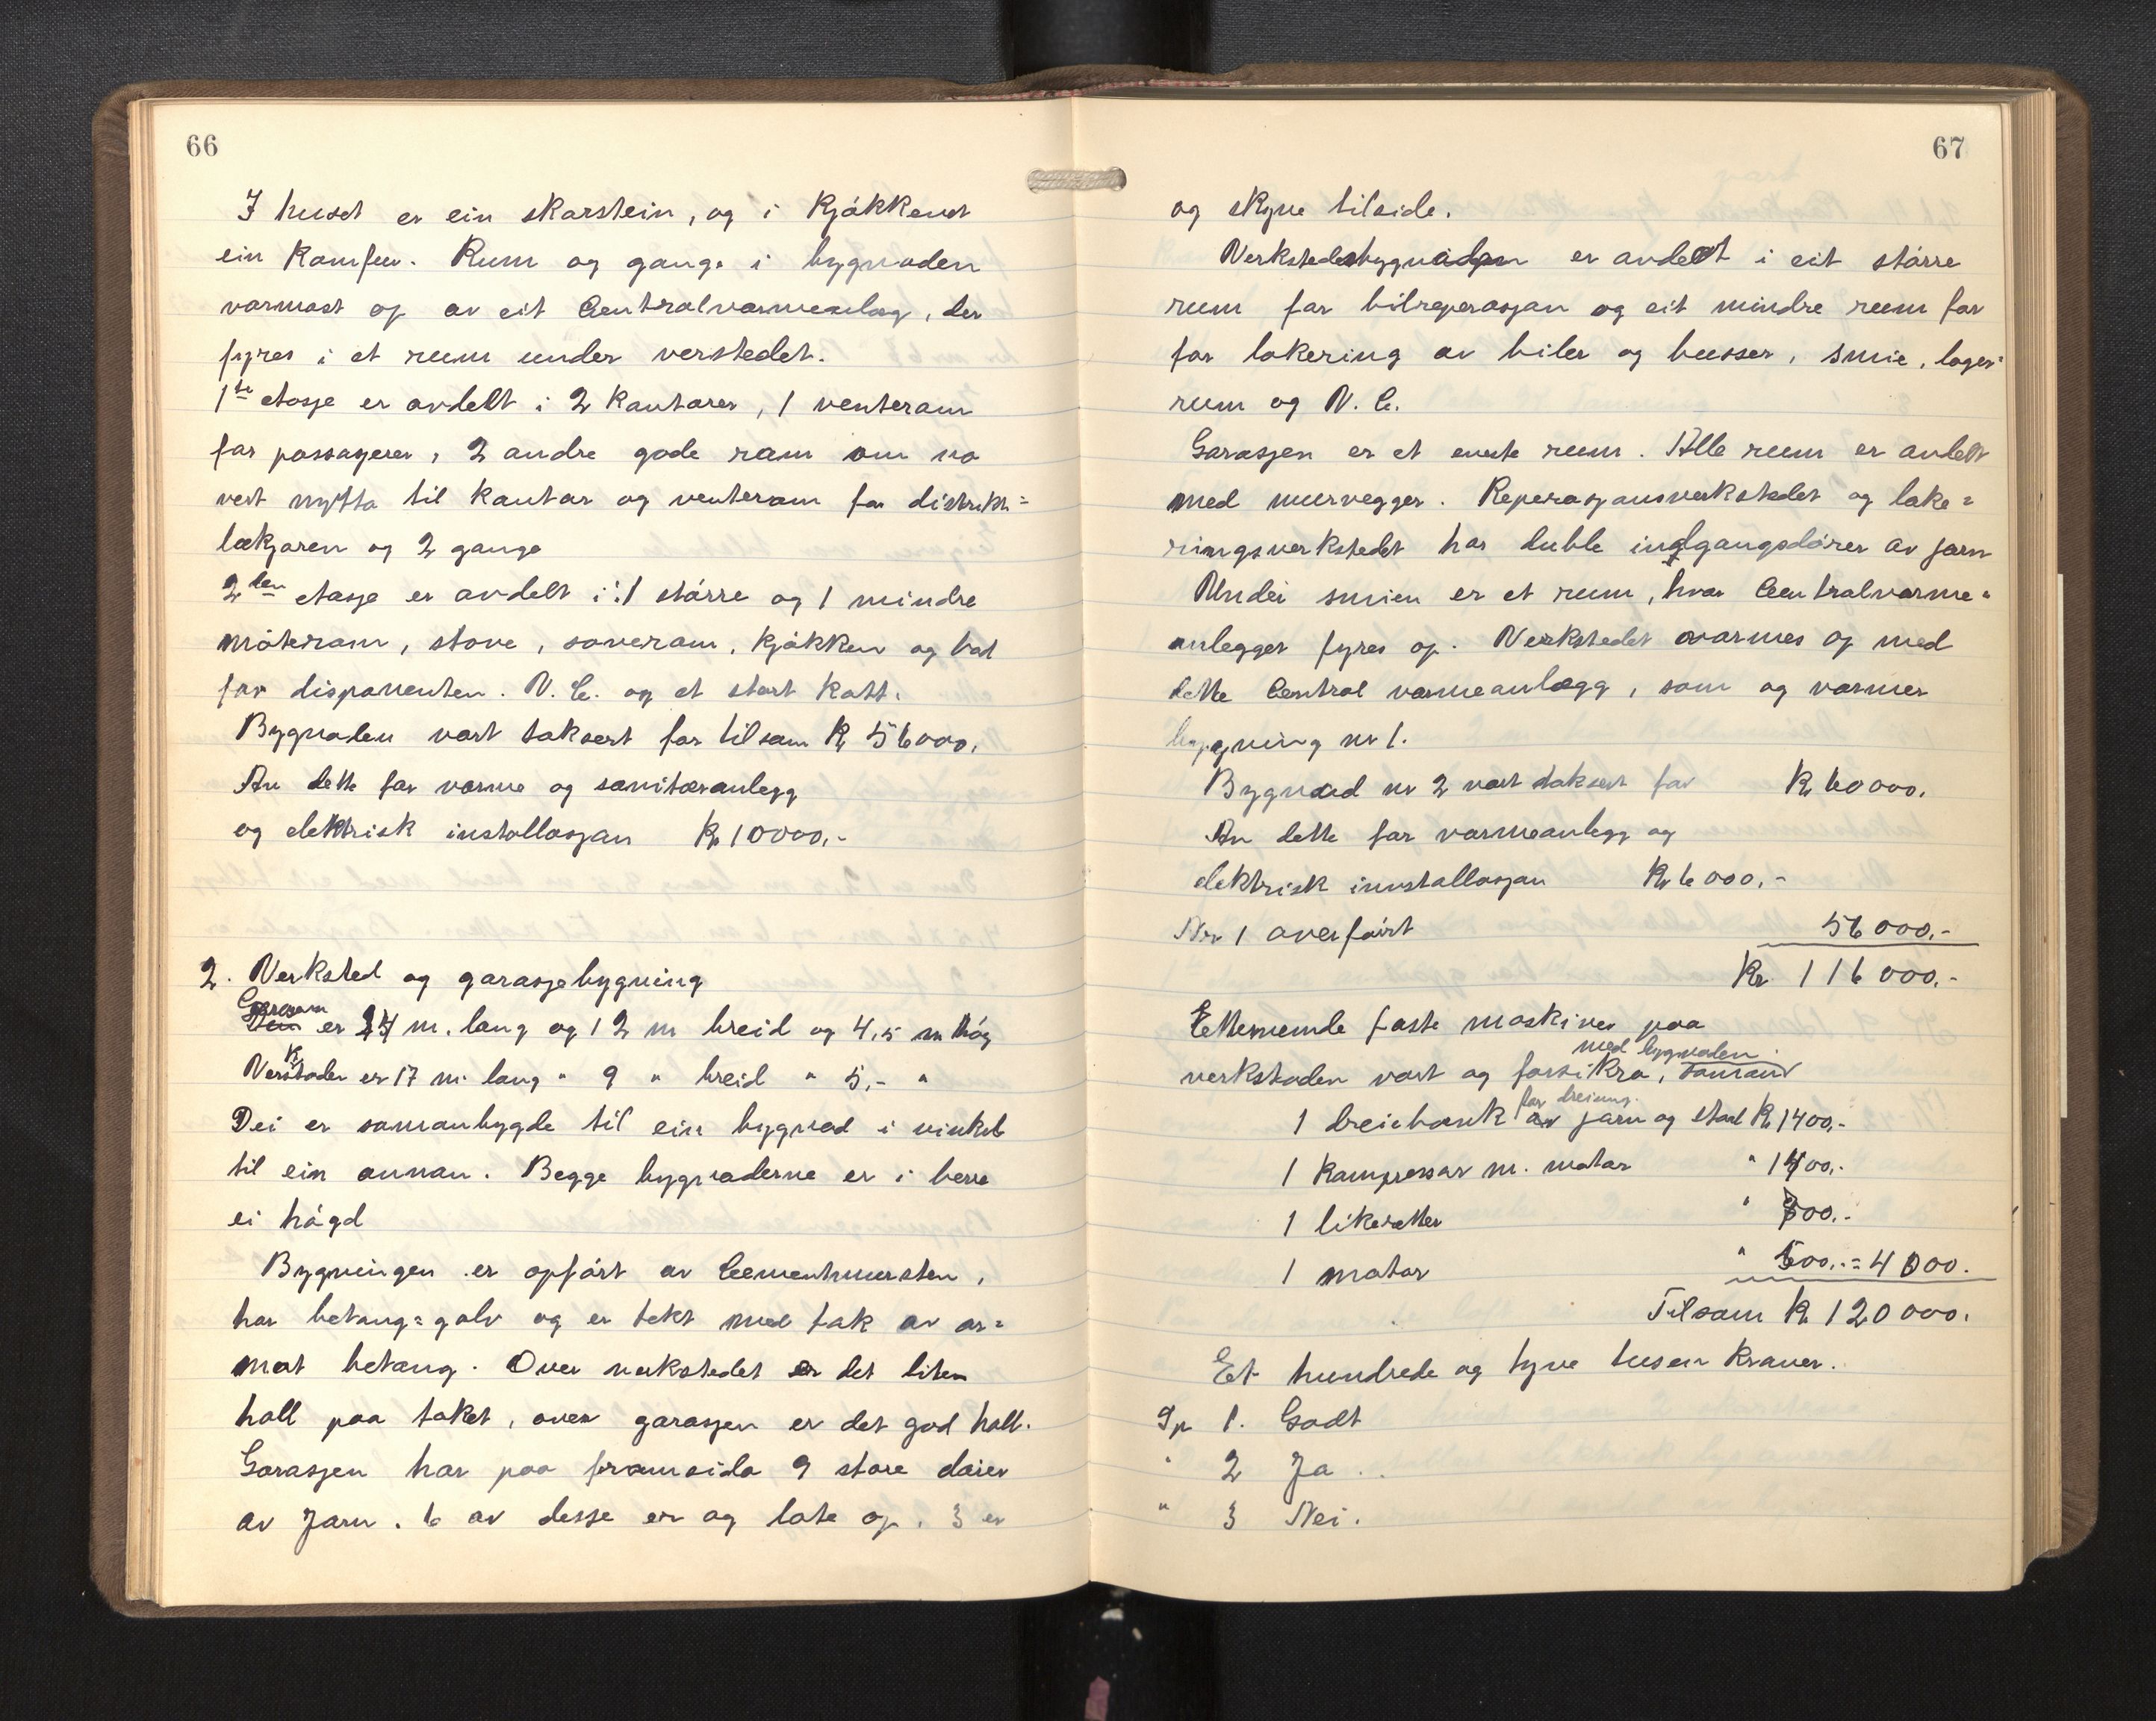 66
I huset er ein skarstein, og i Kjøkkenet
ein Komfur. Rum og gange i bygnaden
varmast op av eit Centralvarmeanlæg, der
fyres i et rum under verstedet.
1ste etasje er avdelt i 2 Kontorer, 1 venterom
for passagerer, 2 andre gode rom om no
vert nytta til Kontor og venterom for distrikts=
lækjaren og 2 gange
2den etasje er avdelt i: 1 større og 1 mindre
møterom, stove, soverom, Kjøkken og bad
for disponenten. V. C. og et stort Kott.
Bygnaden vart taksert for tilsam Kr 56000.
Av dette for varme og sanitæranlegg
og elektrisk installasjon Kr 10000,-
2. Verksted og garasjebygning
Garasjen er 24 m. lang og 12 m breid og 4,5 m høg
Verkstaden er 17 m. lang " 9 " breid " 5,- "
Dei er samanbygde til ein bygnad i vinkel
til ein annan. Begge bygnaderne er i berre
ei høgd
Bygningen er opført av Cementmursten,
har betong=golv og er tekt med tak av ar=
mert betong. Over verkstedet er det liten
hall paa taket, over garasjen er det god hall.
Garasjen har paa framsida 9 store dører
av Jarn. 6 av desse er og late op. 3 er
67
og skyve tilside.
Verkstedsbygnaden er avdelt i eit større
rum for bilreparasjon og eit mindre rum for
for lakering av biler og busser, smie, lager=
rum og V. C.
Garasjen er et eneste rum. Alle rum er avdelt
med murvegger. Reparasjonsverkstedet og lake=
ringsverkstedet har duble indgangsdører av jarn
Under smien er et rum, hvor Centralvarme=
anlegget fyres op. Verkstedet varmes op med
dette Central varmeanlægg, som og varmer
bygning nr 1.
Bygnad nr 2 vart taksert for Kr 60000.
Av dette for varmeanlegg og
elektrisk innstallasjon Kr 6000.-
Nr 1 overført 56000.-
Kr 116000.-
Etternemde faste maskiner paa
verkstaden vart og forsikra, med bygnaden
1 dreiebenk for dreiing av jarn og staal Kr 1400.-
1 Kompressor m. motor " 1400.-
1 likeretter " 700.-
1 motor " 500.-= 4000.
Tilsam Kr 120000.
Et hundrede og tyve tusen Kroner.
Sp 1. Godt
" 2 Ja.
" 3 Nei.